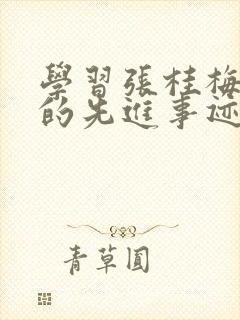 學習張桂梅
的先進事迹
青草圓